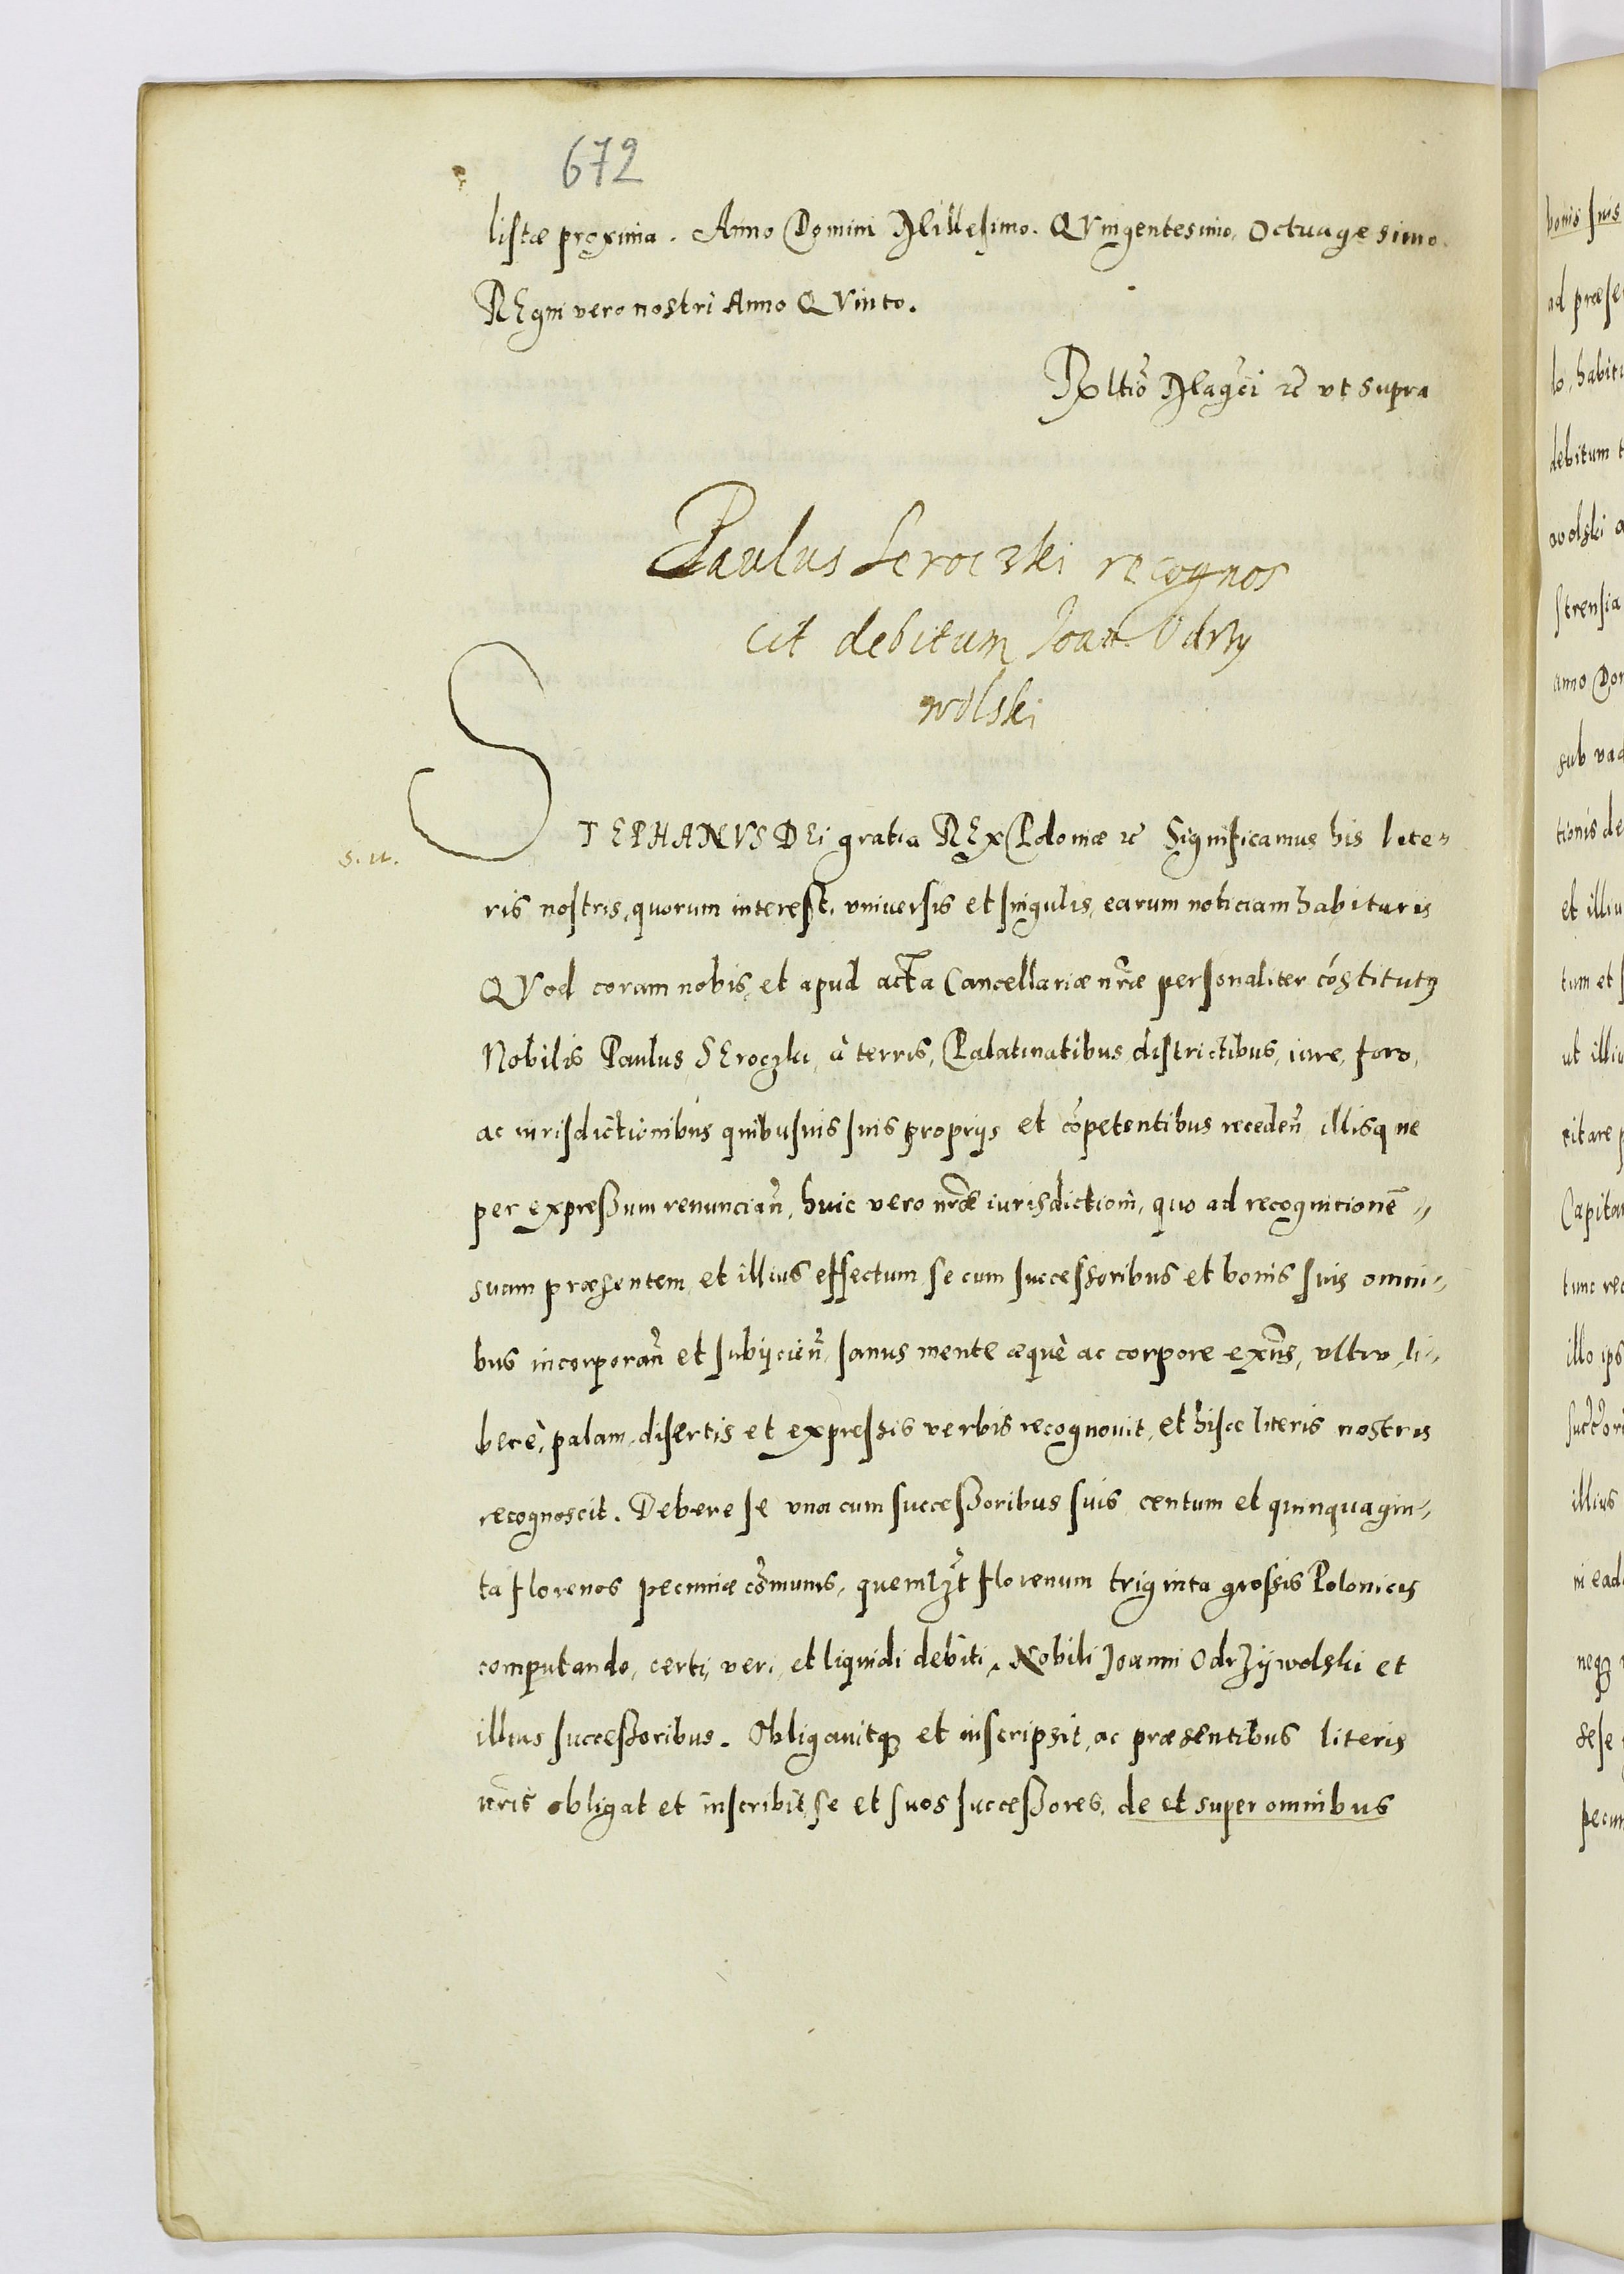 672
listæ proxima. Anno Domini Millesimo. QVingentesimo, Octuagesimo.
REgni vero nostri Anno QVinto.
Rltiõ Magci ꝛc̃ vt supra
Paulus Seroczki recognos
cit debitum Joan. Odrzy
wolski
s. n.
STEPHANVS DEi gratia REx Poloniæ ꝛc̃ Significamus his lite„
ris nostris, quorum interest, vniuersis et singulis, earum noticiam habituris
QVod coram nobis, et apud acta Cancellariæ nr̃æ personaliter cõstitutꝰ
Nobilis Paulus SEroczki, à terris, Palatinatibus, districtibus, iure, foro,
ac iurisdictionibus quibusuis suis proprijs et cõpetentibus recedeñ, illisque
per expressum renunciañ, huic vero nr̃æ iurisdictioni, quo ad recognitionẽ „
suam præsentem, et illius effectum, se cum successoribus et bonis suis omni„
bus incorporañ et subijcieñ, sanus mente æquè ac corpore exñs, vltro, li„
berè, palam, disertis et expressis verbis recognouit, et hisce literis nostris
recognoscit. Debere se vna cum successoribus suis centum et quinquagin„
ta florenos pecuniæ cõmunis, quemlꝫt florenum triginta grossis Polonicis
computando, certi, veri, et liquidi debiti, Nobili Joanni Odrzijwolski et
illius successoribus. Obligauitqꝫ et inscripsit, ac præsentibus literis
nr̃is obligat et inscribit, se et suos successores, de et super omnibus